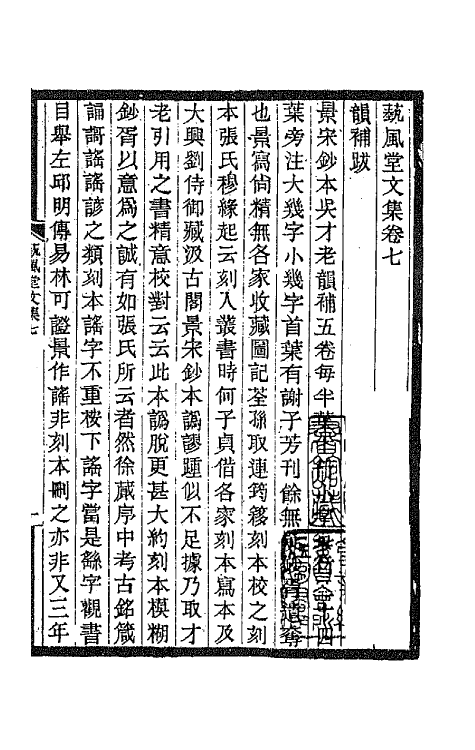 藝風堂文集卷七
韻補跋
景宋鈔本吳才老韻補五卷每半葉
葉旁注大幾字小幾字首葉有謝子芳刊餘無
也景寫尙精無各家收藏圖記荃孫取連筠簃刻本校之刻
本張氏穆緣起云刻入叢書時何子貞借各家刻本寫本及
大興劉侍御藏汲古閣景宋鈔本譌謬踵似不足據乃取才
老引用之書精意校對云云此本譌脫更甚大約刻本模糊
鈔胥以意爲之誠有如張氏所云者然徐蕆序中考古銘箴
誦謌謠謠諺之類刻本謠字不重桉下謠字當是繇字觀書
目舉左邱明傳易林可證景作謠非刻本刪之亦非又三年
藝風堂文集七
一